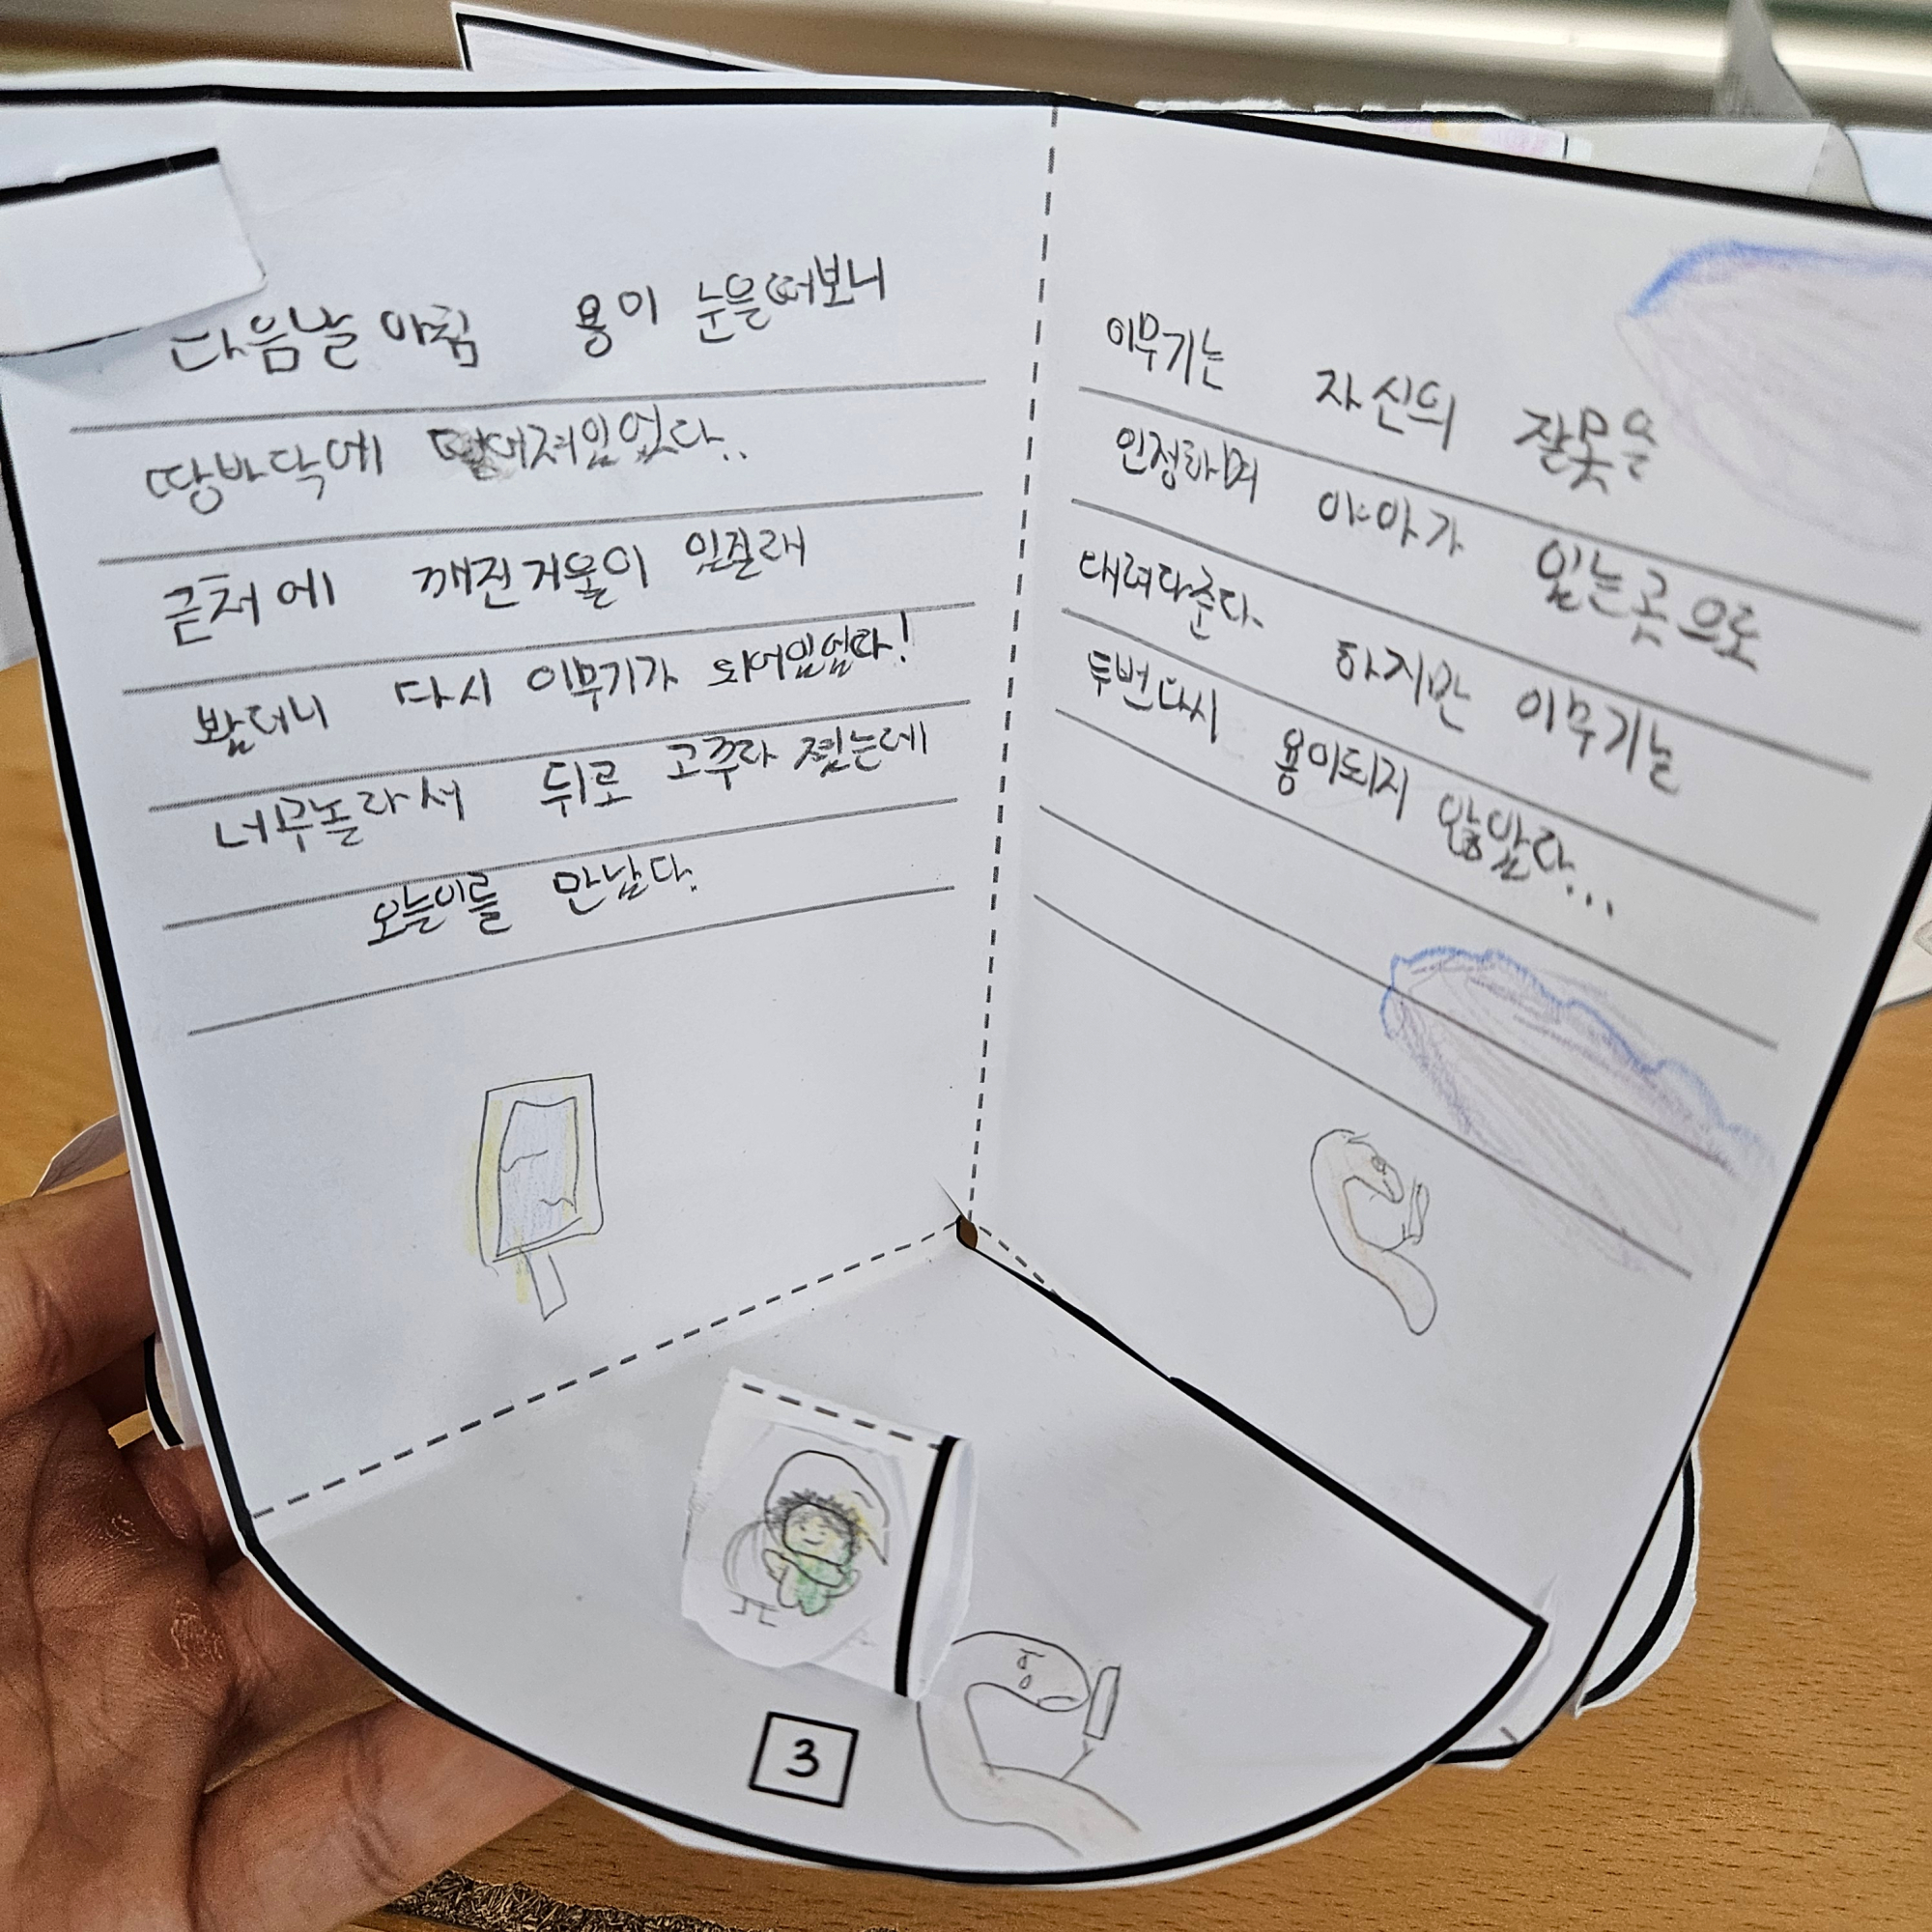 다음날 아침 용이 눈을떠보니
땅바닥에 떨어져있었다..
근처에 깨진거울이 있길래
봤더니 다시 이무기가 되어있었다!
너무놀라서 뒤로 고꾸라 졌는데
오늘이를 만났다.
이무기는 자신의 잘못을
인정하며 야아가 있는곳으로
대려다준다. 하지만 이무기는
두번다시 용이되지 않았다...
3